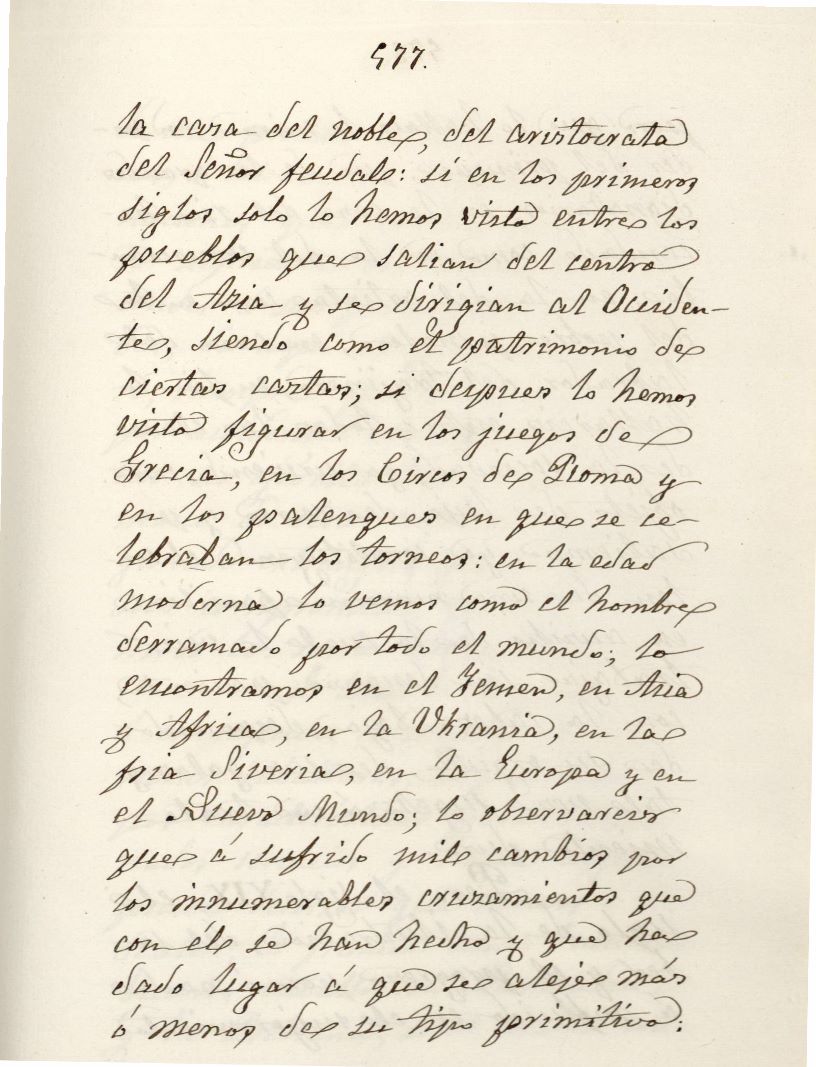 577.
la casa del noble, del aristocrata
del Señor feudal: si en los primeros
siglos solo lo hemos visto entre los
pueblos que salian del centro
del Asia y se dirigian al Occiden-
te, siendo como el patrimonio de
ciertas castas; si despues lo hemos
visto figurar en los juegos de
Grecia, en los Circos de Roma y
en los palenques en que se ce-
lebraban los torneos: en la edad
moderna lo vemos como el hombre
derramado por todo el mundo; lo
encontramos en el Yemen, en Asia
y Africa, en la Ukrania, en la
fria Siveria, en la Europa y en
el Nuevo Mundo; lo observareis
que á sufrido mil cambios por
los innumerables cruzamientos que
con él se han hecho y que ha
dado lugar á que se aleje más
ó menos de su tipo primitivo: